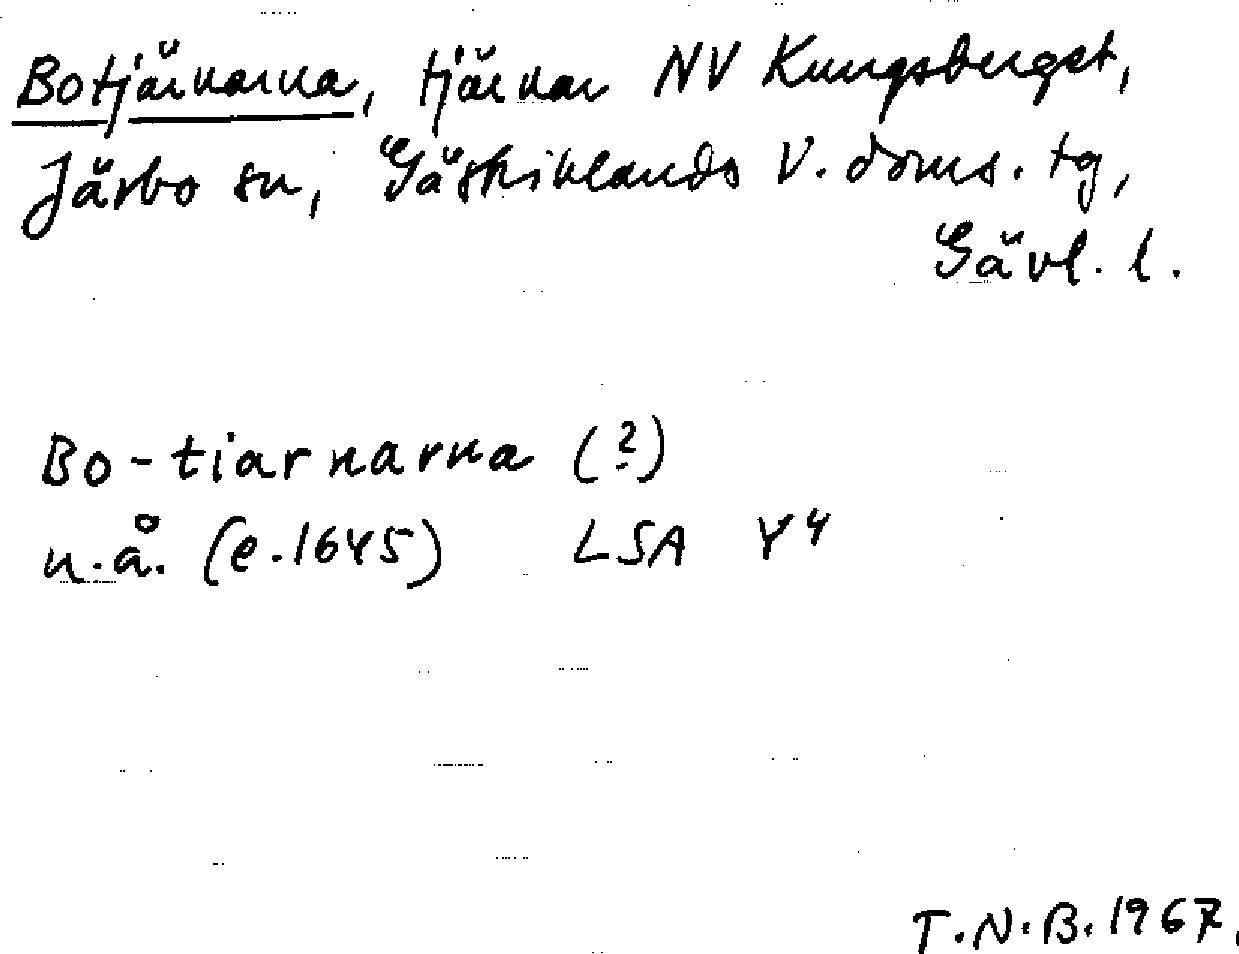 Botjärnarna, tjärnar NV Kungsberget,
Järbo sn, Gästriklands V. doms. tg,
Gävl. l.
Bo-tiarnarna (?)
n.å. (e.1645) LSA Y4
T.N.B. 1967.